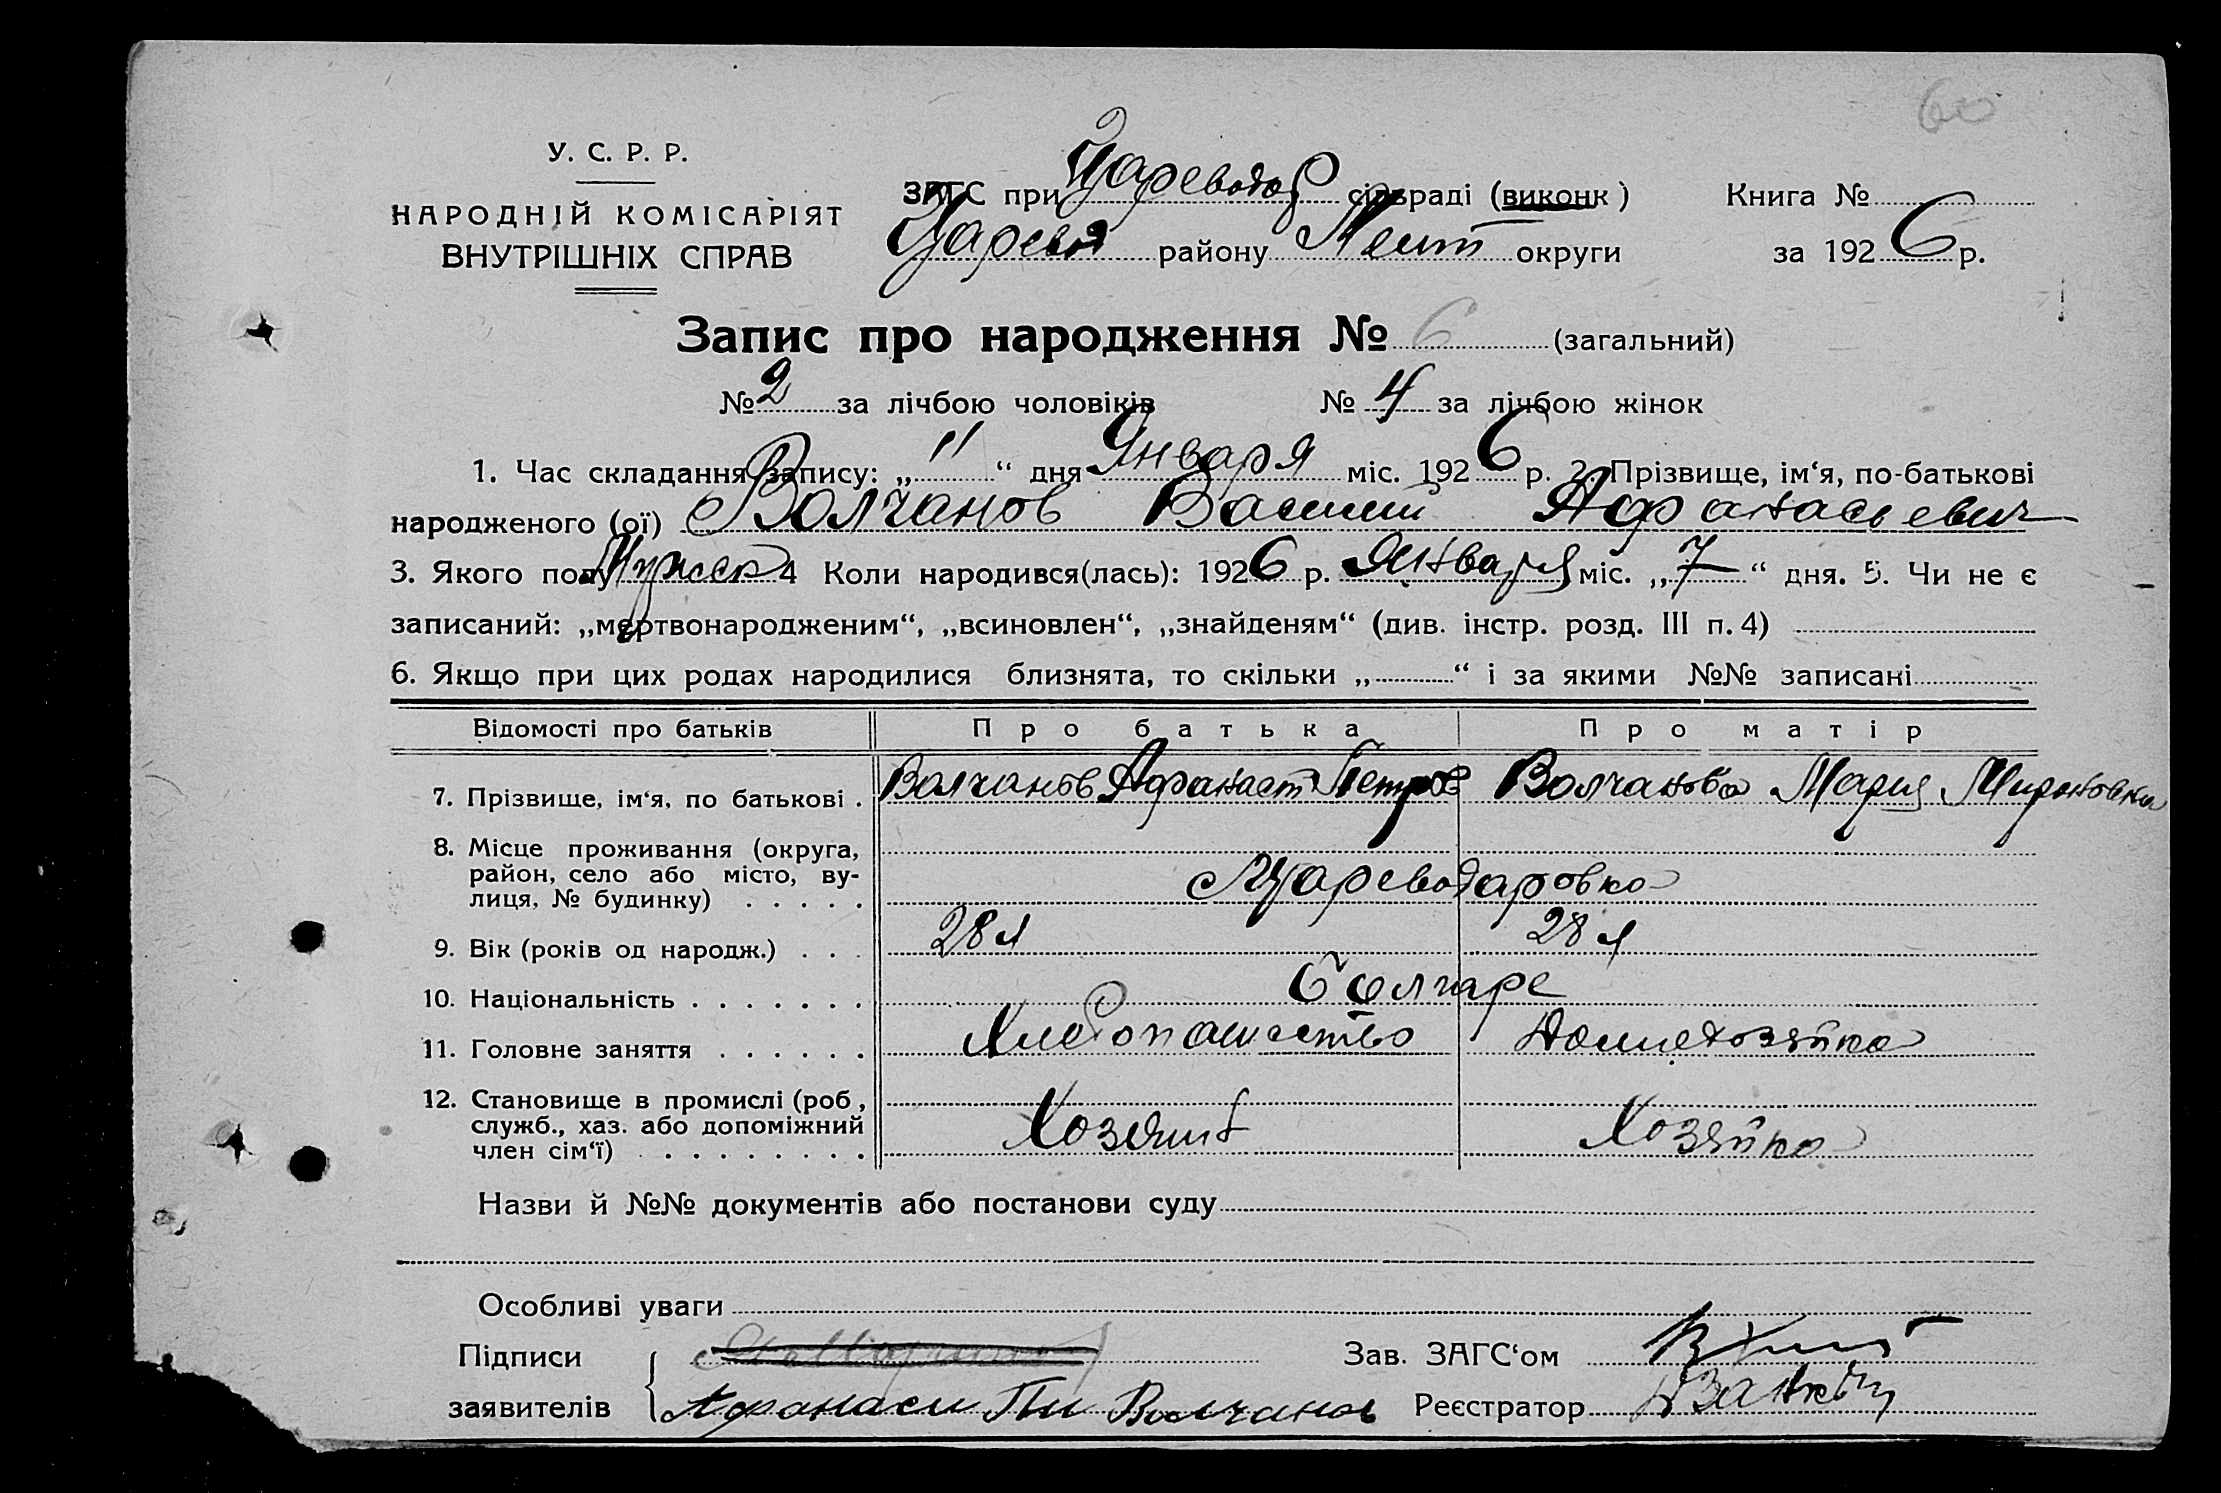 60
У. С. Р. Р.
НАРОДНІЙ КОМІСАРІЯТ
ВНУТРІШНІХ СПРАВ
ЗАГС при Цареводар сільраді (виконк)
Книга №
Царев района Мелит округи
за 1926 р.
Запис про народження № 6 (загальний)
№ 2 за лічбою чоловіків № 4 за лічбою жінок
1. Час складання запису: „11“ дня Января міс. 1926 р. 2. Прізвище, ім‘я, по-батькові
народженого (ої) Волчанов Василий Афанасьевич
3. Якого полу Мужск 4 Коли народився(лась): 1926 р. Января міс. „7“ дня. 5. Чи не є
записаний: „мертвонародженим“, „всиновлен“, „знайденям“ (див. інстр. розд. III п. 4)
6. Якщо при цих родах народилися близнята, то скільки „ “ і за якими №№ записані
Відомості про батьків Про батька Про матір
7. Прізвище, ім‘я, по батькові . Волчанов Афанасий Петров Волчанова Мария Мироновна
8. Місце проживання (округа,
район, село або місто, ву-
лиця, № будинку) . . . . .
Цареводаровка
9. Вік (років од народж.) . . . 28 л 28 л
10. Національність . . . . . . . Болгаре
11. Головне заняття . . . . . . Хлебопашество Домохозяйка
12. Становище в промислі (роб ,
служб., хаз. або допоміжний
член сім‘ї) . . . . . . . .
Хозяин Хозяйка
Назви й №№ документів або постанови суду
Особливі уваги
Підписи
Зав. ЗАГС‘ом
заявителів Афанаси Волчанов Реєстратор